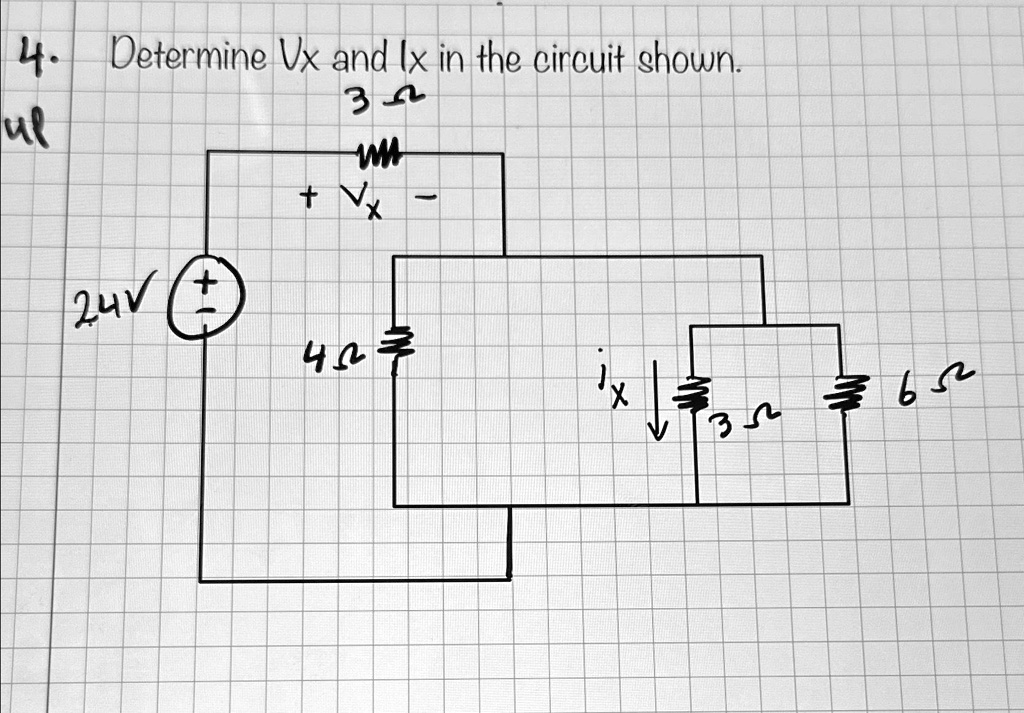 4. Determine Vx and Ix in the circuit shown.
3 Ω
+ Vx -
24V + -
4Ω
ix
3 Ω
6 Ω